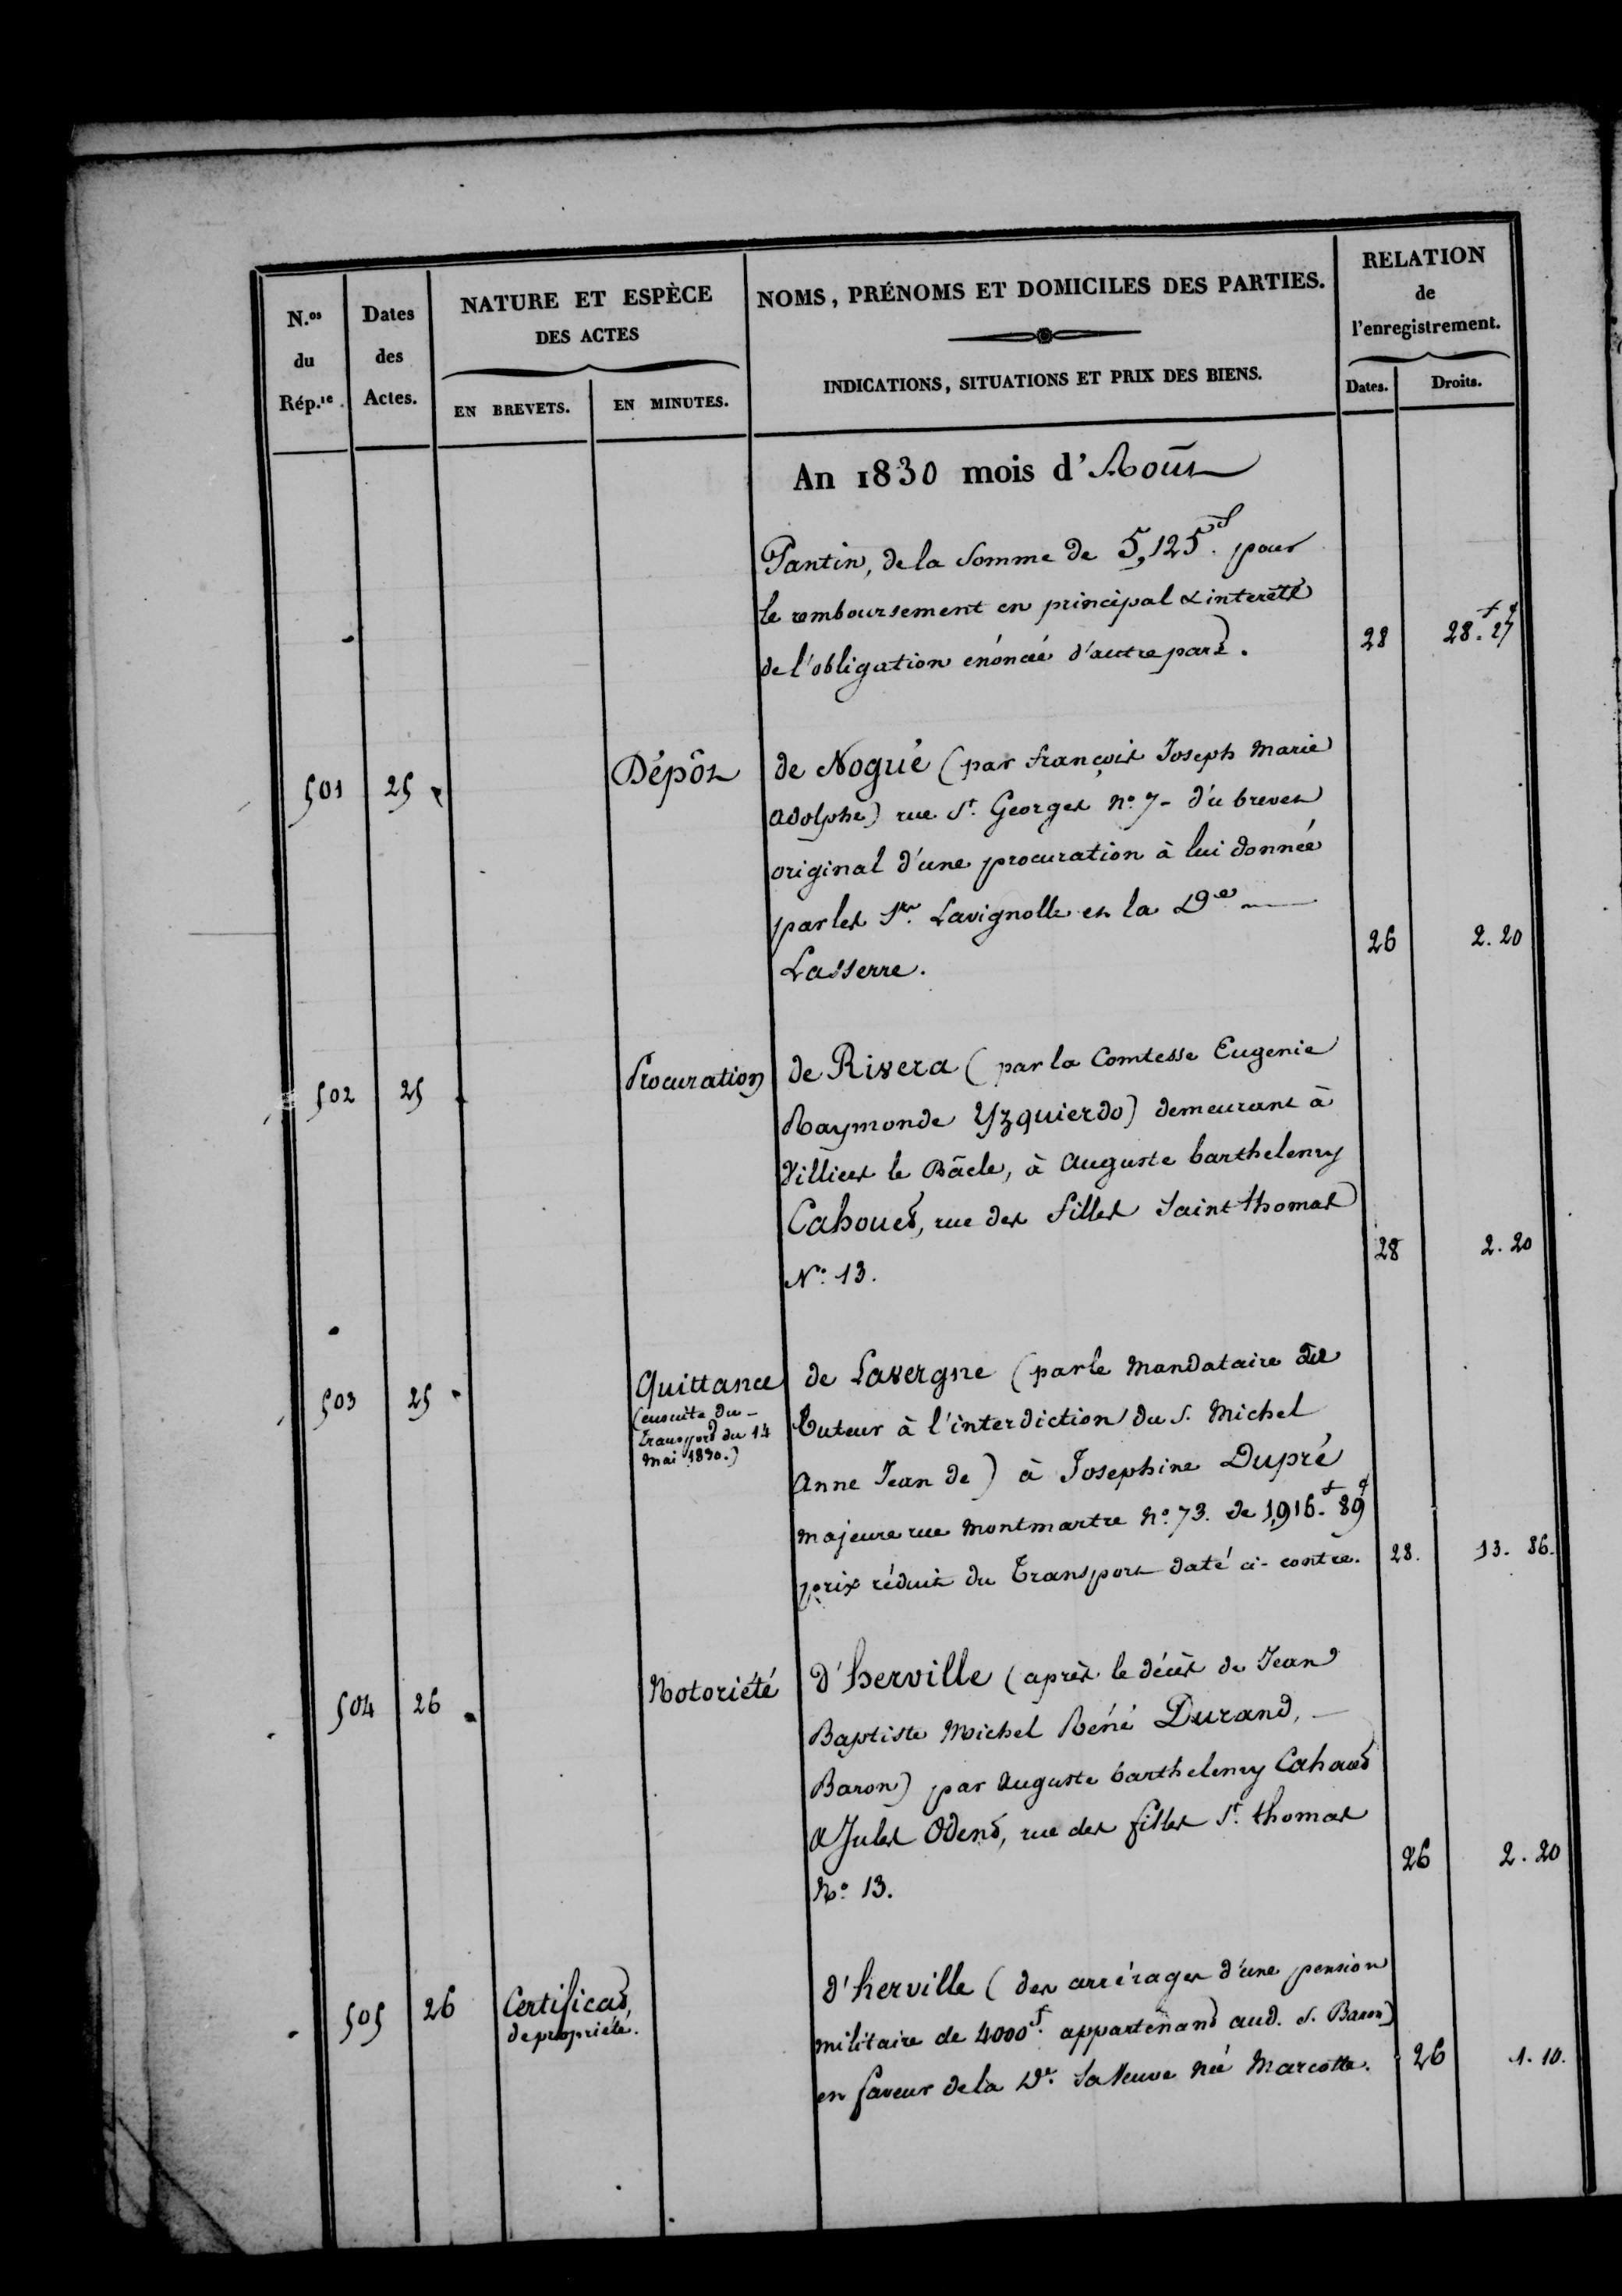 N.os du Rép.re
Dates des Actes.
NATURE ET ESPÈCE DES ACTES
EN BREVETS.
EN MINUTES.
NOMS, PRÉNOMS ET DOMICILES DES PARTIES.
INDICATIONS, SITUATIONS ET PRIX DES BIENS.
RELATION de l'enregistrement.
Dates.
Droits.
An 1830 mois d'Août
Pantin, de la Somme de 5,125f. pour
le remboursement en principal & interêts
de l'obligation énoncée d'autre part. 28 28f. 27c
501 25 Dépôt de Nogué (par françois Joseph Marie
adolphe) rue St. Georges No. 7 - du brevet
original d'une procuration à lui donnée
par les Srs. Lavignolle et la De
Lasserre. 26 2. 20
502 25 Procuration de Rivera (par la Comtesse Eugenie
Raymonde Yzquierdo) demeurant à
Villiers le Bâcle, à Auguste barthelemy
Cahouet, rue des filles Saint thomas
No. 13. 28 2. 20
503 25 Quittance de Lavergne (par le Mandataire du
(ensuite du
transport du 14
mai 1830.)
Tuteur à l'interdiction du S. Michel
Anne Jean de) à Josephine Dupré
majeure rue Montmartre No. 73. de 1,916f. 89c
prix réduit du Transport daté ci-contre. 28. 13. 86.
504 26 Notoriété d'herville (après le décès de Jean
Baptiste Michel Réné Durand,
Baron) par Auguste barthelemy Cahouet
& Jules Odent, rue des filles St. thomas
No. 13. 26 2. 20
505 26 Certificat de propriété. d'herville (des arrérages d'une pension
militaire de 4000f. appartenant aud. S. Baron)
en faveur de la De. Sa Veuve née Marcotte. 26 1. 10.